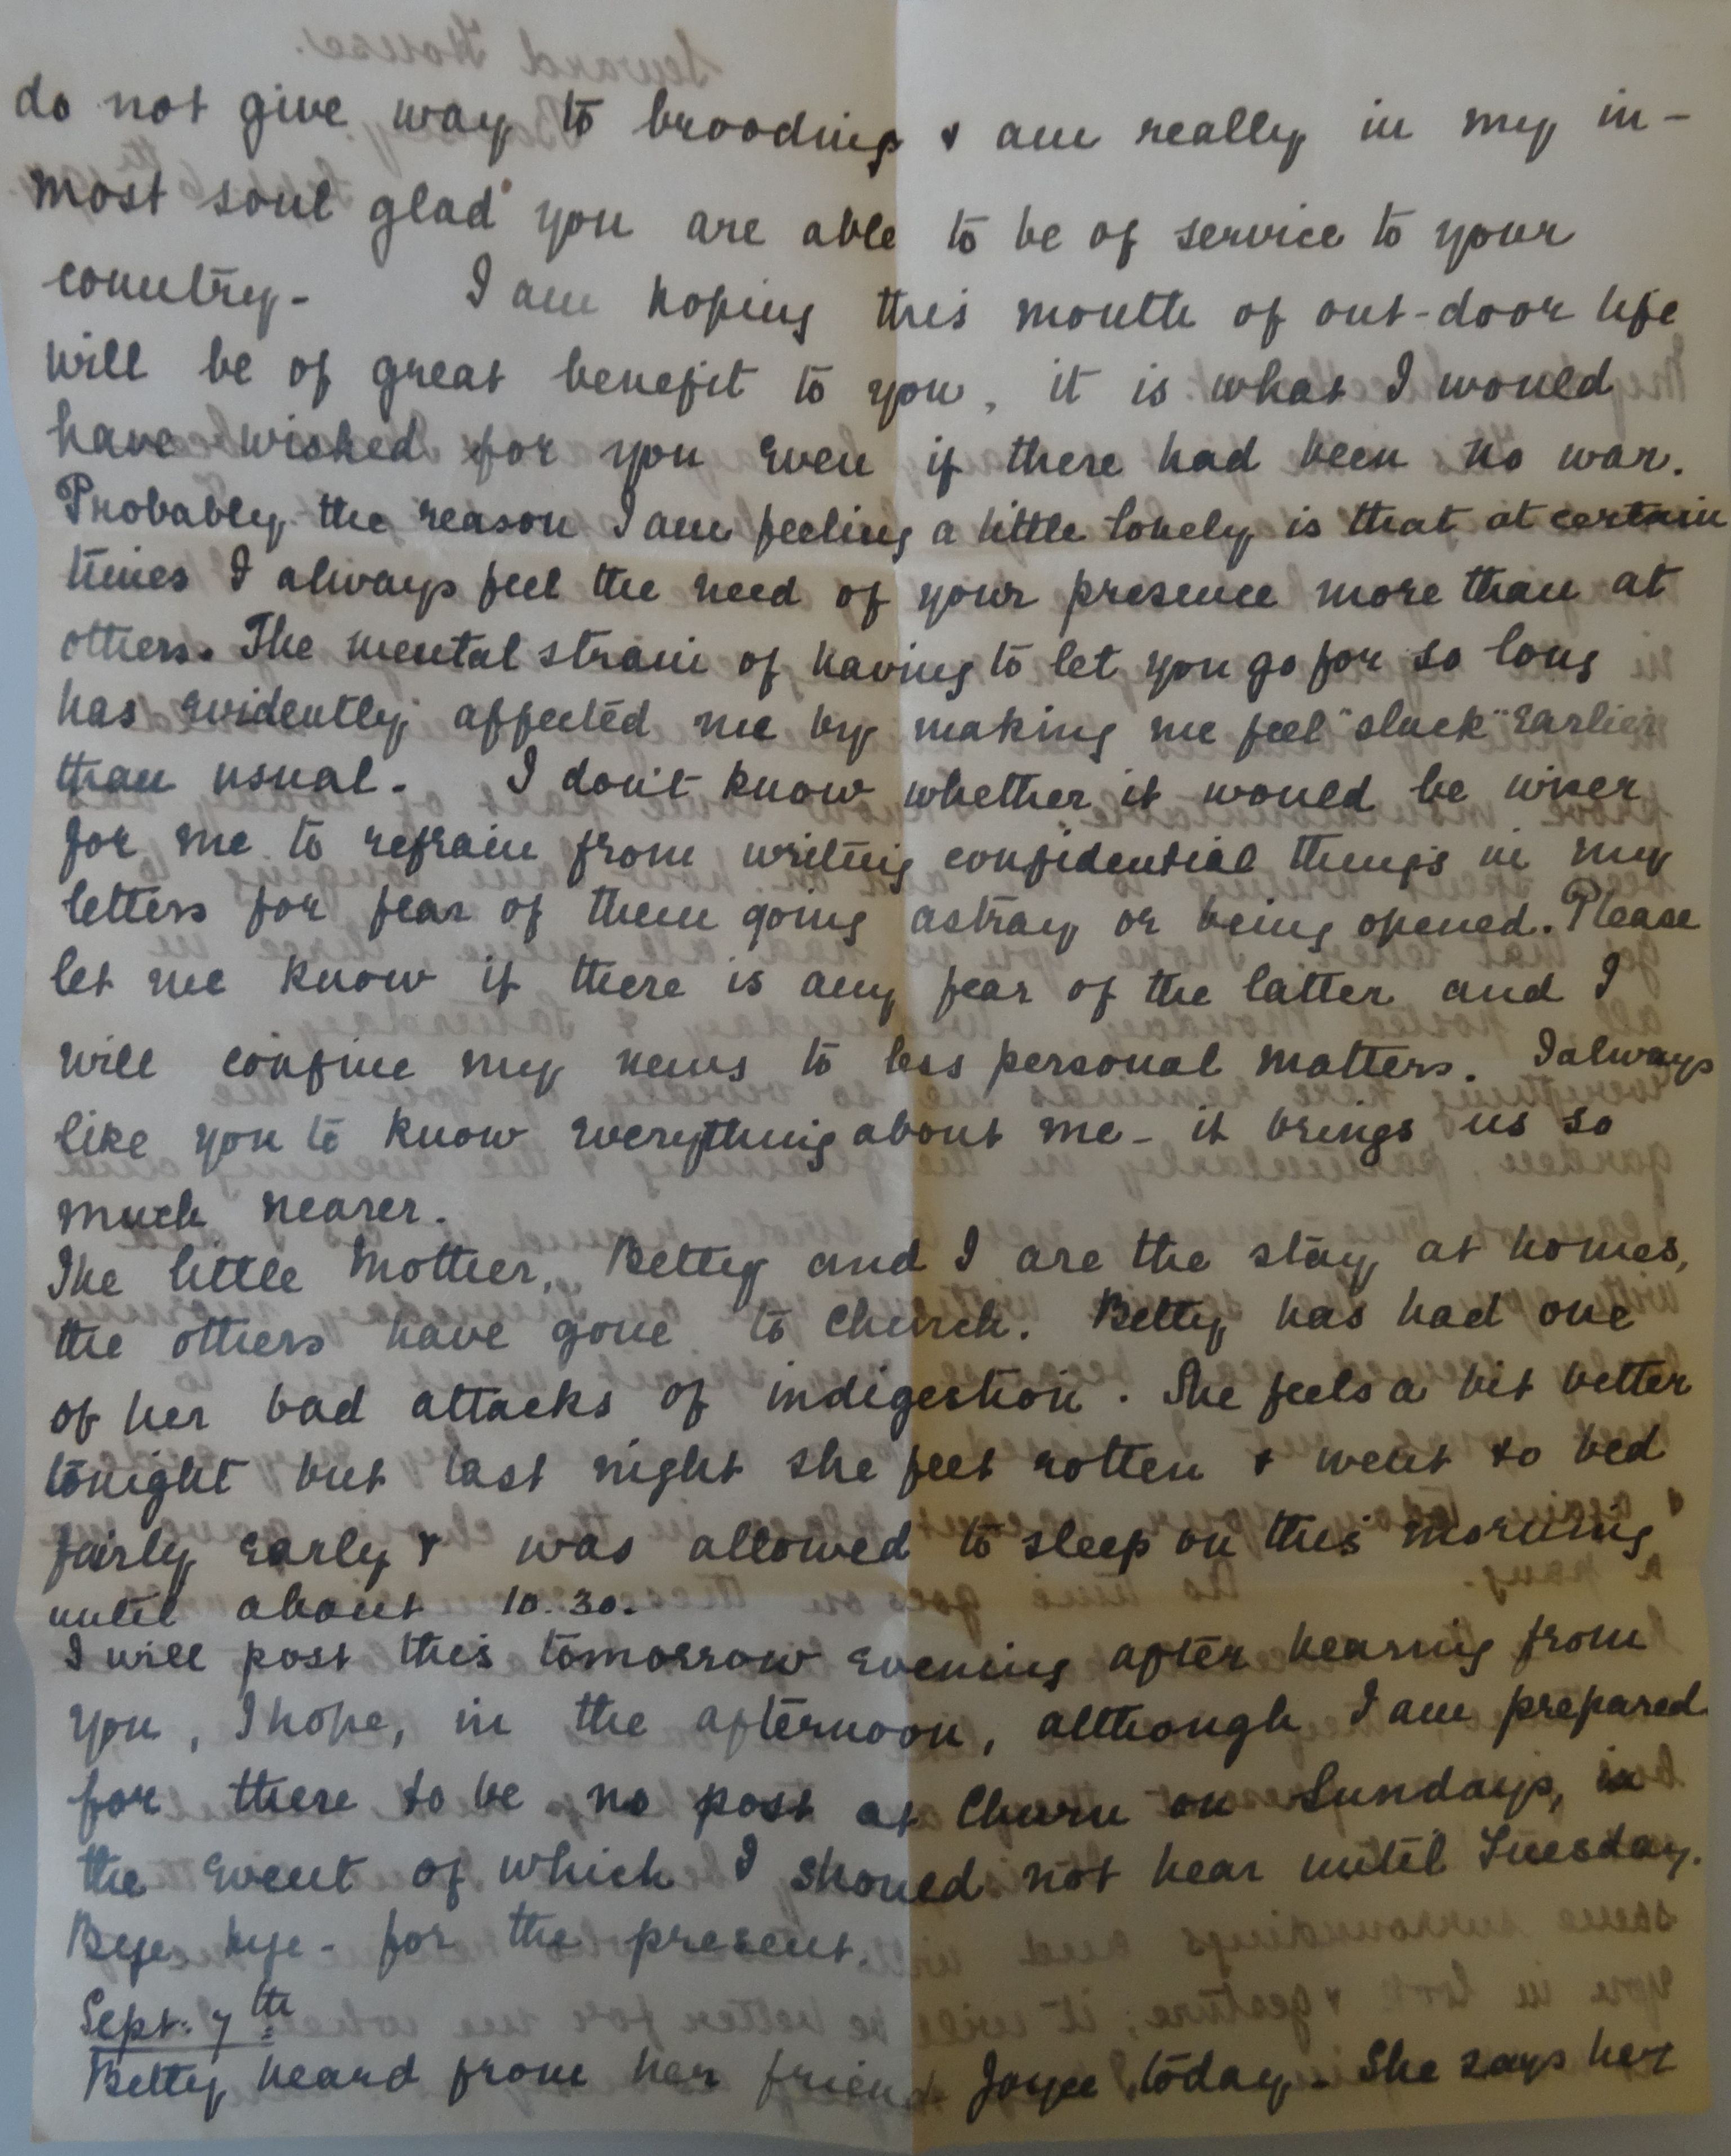 do not give way to brooding & am really in my in-
most soul glad you are able to be of service to your
country- I am hoping this month of out-door life
will be of great benefit to you, it is what I would
have wished for you even if there had been no war.
Probably the reason I am feeling a little lonely is that at certain
times I always feel the need of your presence more than at
others. The mental strain of having to let you go for so long
has evidently affected me by making me feel "slack" earlier
than usual. I don't know whether it would be wiser
for me to refrain from writing confidential things in my
letters for fear of them going astray or being opened. Please
let me know if there is any fear of the latter and I
will confine my news to less personal matters. I always
like you to know everything about me - it brings us so
much nearer.
The little Mother, Betty and I are the stay at homes,
the others have gone to Church. Betty has had one
of her bad attacks of indigestion. She feels a bit better
tonight but last night she felt rotten & went to bed
fairly early & was allowed to sleep on this morning
until about 10.30.
I will post this tomorrow evening after hearing from
you, I hope, in the afternoon, although I am prepared
for there to be no post at Churn on Sundays, in
the event of which I should not hear until Tuesday.
Bye bye - for the present.
Sept: 7th
Betty heard from her friend Joyce today - She says her